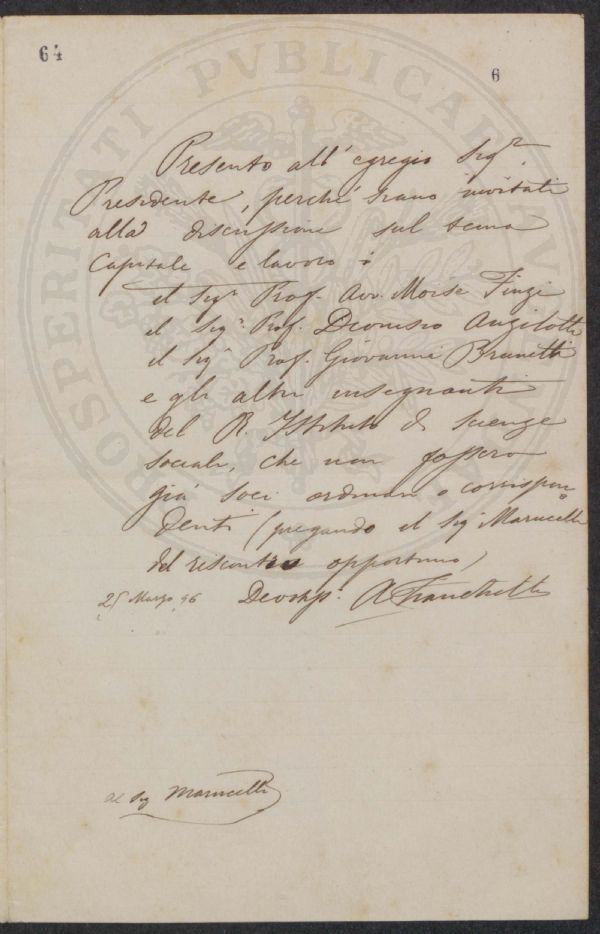 64
6
PROSPERITATI PVBLICAE AVGENDAE
Presento all'egregio Sigr
Presidente, perché siano invitati
alla discussione sul tema
Capitale e lavoro:
il Sigr Prof. Avv. Moisè Finzi
il Sigr Prof. Dionisio Anzilotti
il Sigr Prof. Giovanni Brunetti
e gli altri insegnanti
del R. Istituto di Scienze
sociali, che non fossero
già soci ordinari o corrispon=
denti (pregando il Sigr Marucelli
del riscontro opportuno)
25 Marzo 96 Devotiss: A Franchetti
al Sig Marucelli